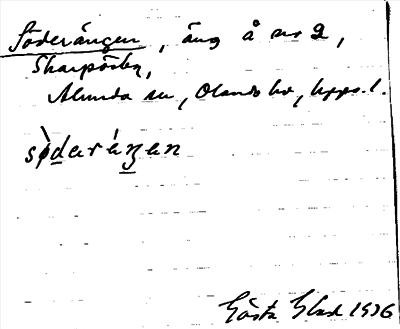 Söderängen, äng å nr 2,
Skarpörby,
Alunda sn, Olands hd, Upps. l.
sø̀darǽŋan
Gösta Blad 1936